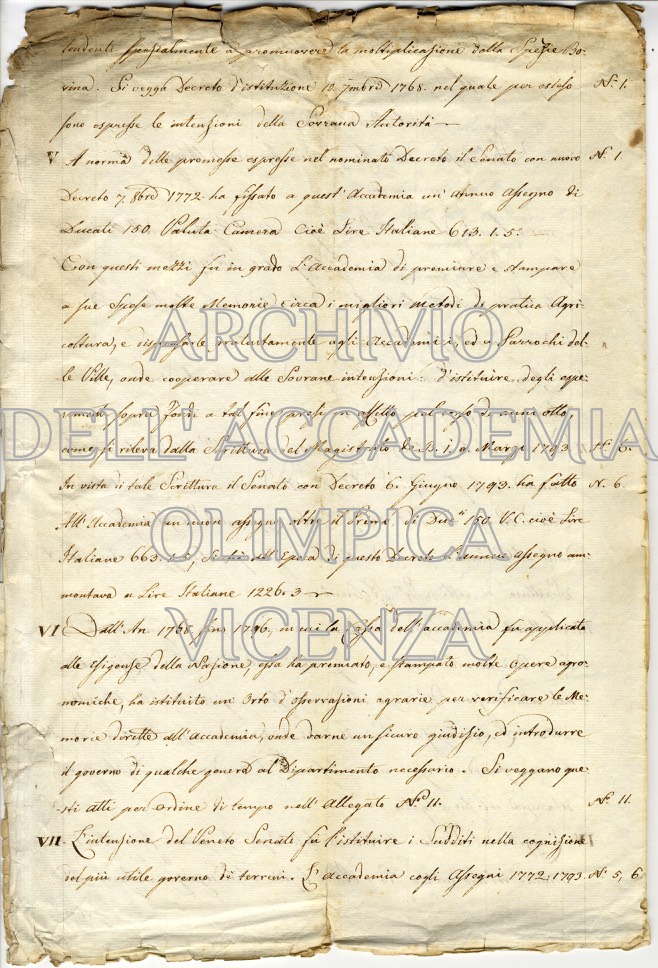 tendenti spezialmente a promuovere la moltiplicazione della Spezie Bo-
vina. Si vegga Decreto d'istituzione 10. 7mbre 1768. nel quale per esteso N.º 1.
sono espresse le intenzioni della Sovrana Autorità
V A norma delle promesse espresse nel nominato Decreto il Senato con nuovo N.º 1
Decreto 7. 8bre 1772. ha fissato a quest'Accademia un'Annuo Assegno di
Ducati 150. Valuta Camera cioè Lire Italiane 613. 1. 5.
Con questi mezzi fu in grado L'Accademia di premiare e stampare
a sue Spese molte Memorie circa i migliori metodi di pratica Agri-
coltura, e dispensarle gratuitamente agli Accademici, ed a Parrochi del-
le Ville, onde cooperare alle Sovrane intenzioni: d'istituire degli espe-
rimenti sopra Fondi a tal fine presi in affitto pel corso di anni otto,
come si rileva dalla Scrittura del Magistrato de B. I. 9. Marzo 1793. N.º 6.
In vista di tale Scrittura il Senato con Decreto 6. Giugno 1793. ha fatto N. 6.
All'Accademia un nuovo assegno oltre il Primo di Du.ti 150. V.C. cioè Lire
Italiane 663. 1. 5, Sicchè all'Epoca di questo Decreto l'annuo Assegno am-
montava a Lire Italiane 1226. 3
VI Dall'An. 1768 fino 1796, in cui la Cassa dell'accademia fu applicata
alle esigenze della Nazione, essa ha premiato, e stampato molte opere agro-
nomiche, ha istituito un Orto d'osservazioni agrarie per verificare le Me-
morie dirette all'Accademia, onde darne un sicuro giudizio, ed introdurre
il governo di qualche genere al Dipartimento necessario. Si veggano que-
sti atti per ordine di tempo nell'Allegato N.º 11. N.º 11.
VII L'intenzione del Veneto Senato fu l'istituire i Sudditi nella cognizione
del più utile governo de terreni. L'Accademia cogli Assegni 1772. 1793. N.º 5, 6
ARCHIVIO
DELL'ACCADEMIA
OLIMPICA
VICENZA